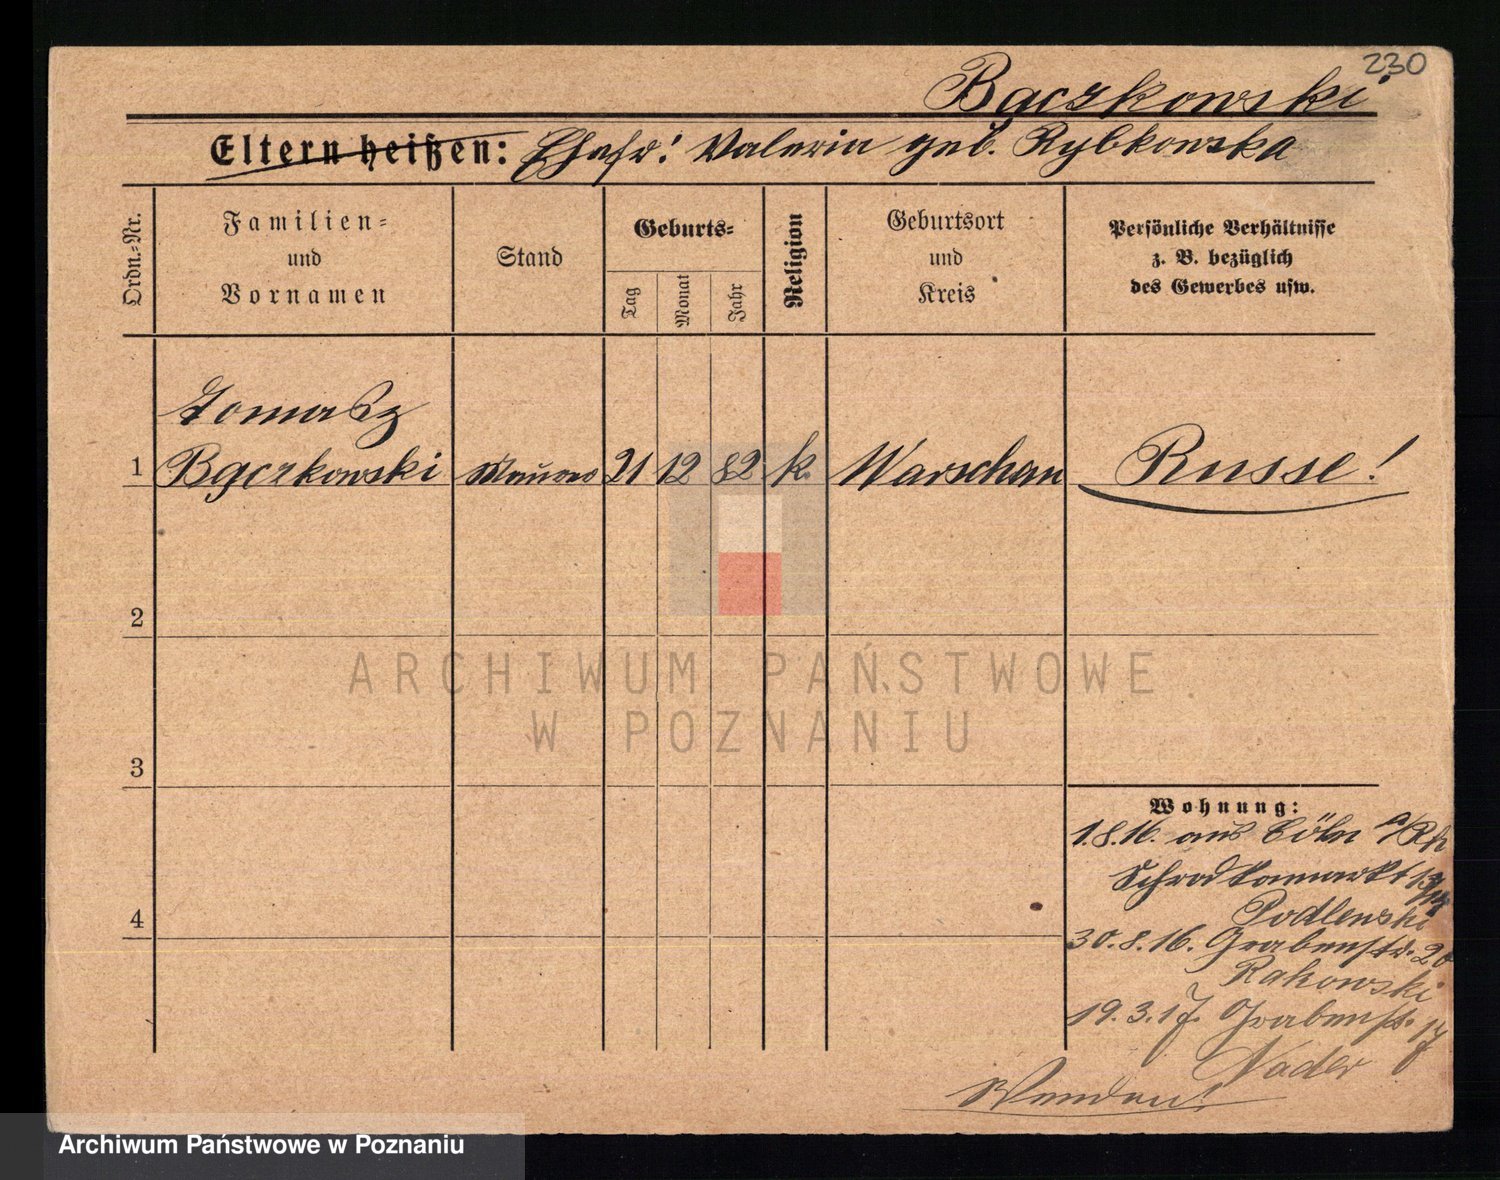 230
Bączkowski
Eltern heißen: Ehefr: Valeria geb. Rybkowska
Ordn.-Nr.
Familien-
und
Vornamen
Stand
Geburts-
Tag
Monat
Jahr
Religion
Geburtsort
und
Kreis
Persönliche Verhältnisse
z. B. bezüglich
des Gewerbes usw.
Tomasz
1 Bączkowski Maurer 21 12 82 k. Warschau Russe!
2
3
4
Wohnung:
1.8.16. aus Cöln a/Rh
Schrodkamarkt
Podlenski
30.8.16. Grabenstr. 20
Rakowski
19.3.17. Grabenstr. 17
Nader
Wenden!
ARCHIWUM PAŃSTWOWE
W POZNANIU
Archiwum Państwowe w Poznaniu